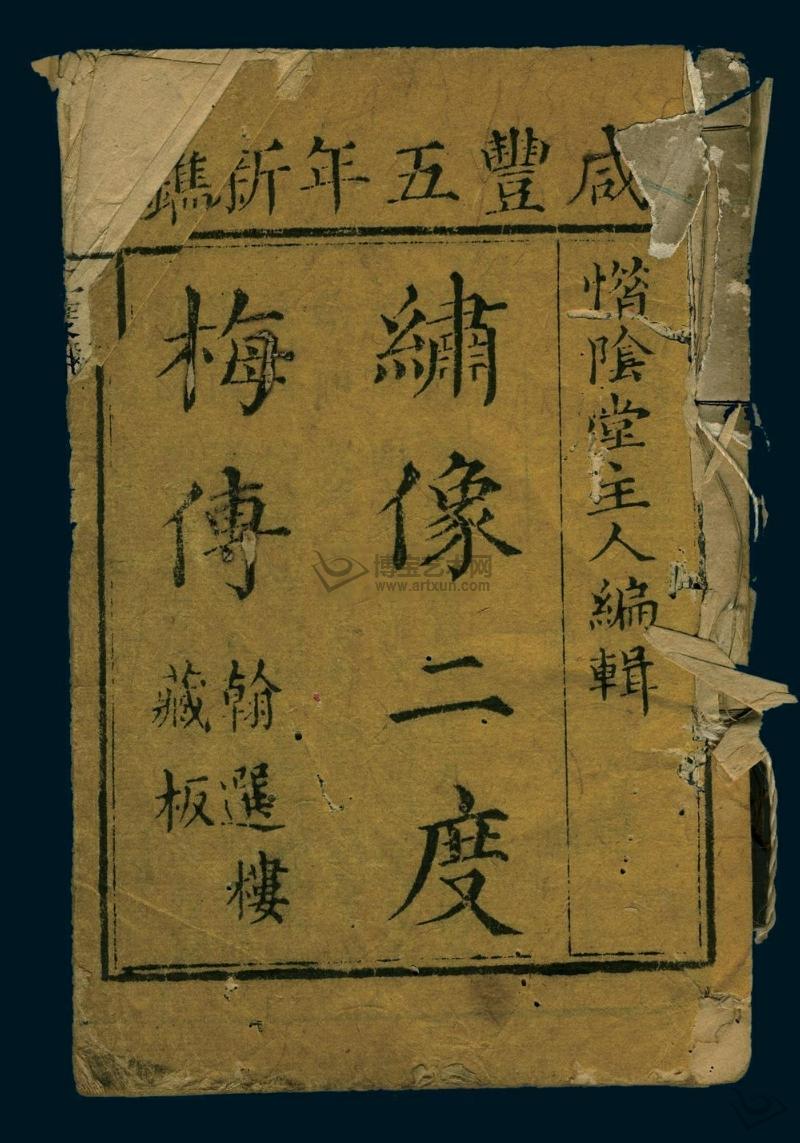 咸豐五年新鐫
惜陰堂主人編輯
繡像二度
梅傳
翰選樓
藏板
博宝艺术网
www.artxun.com